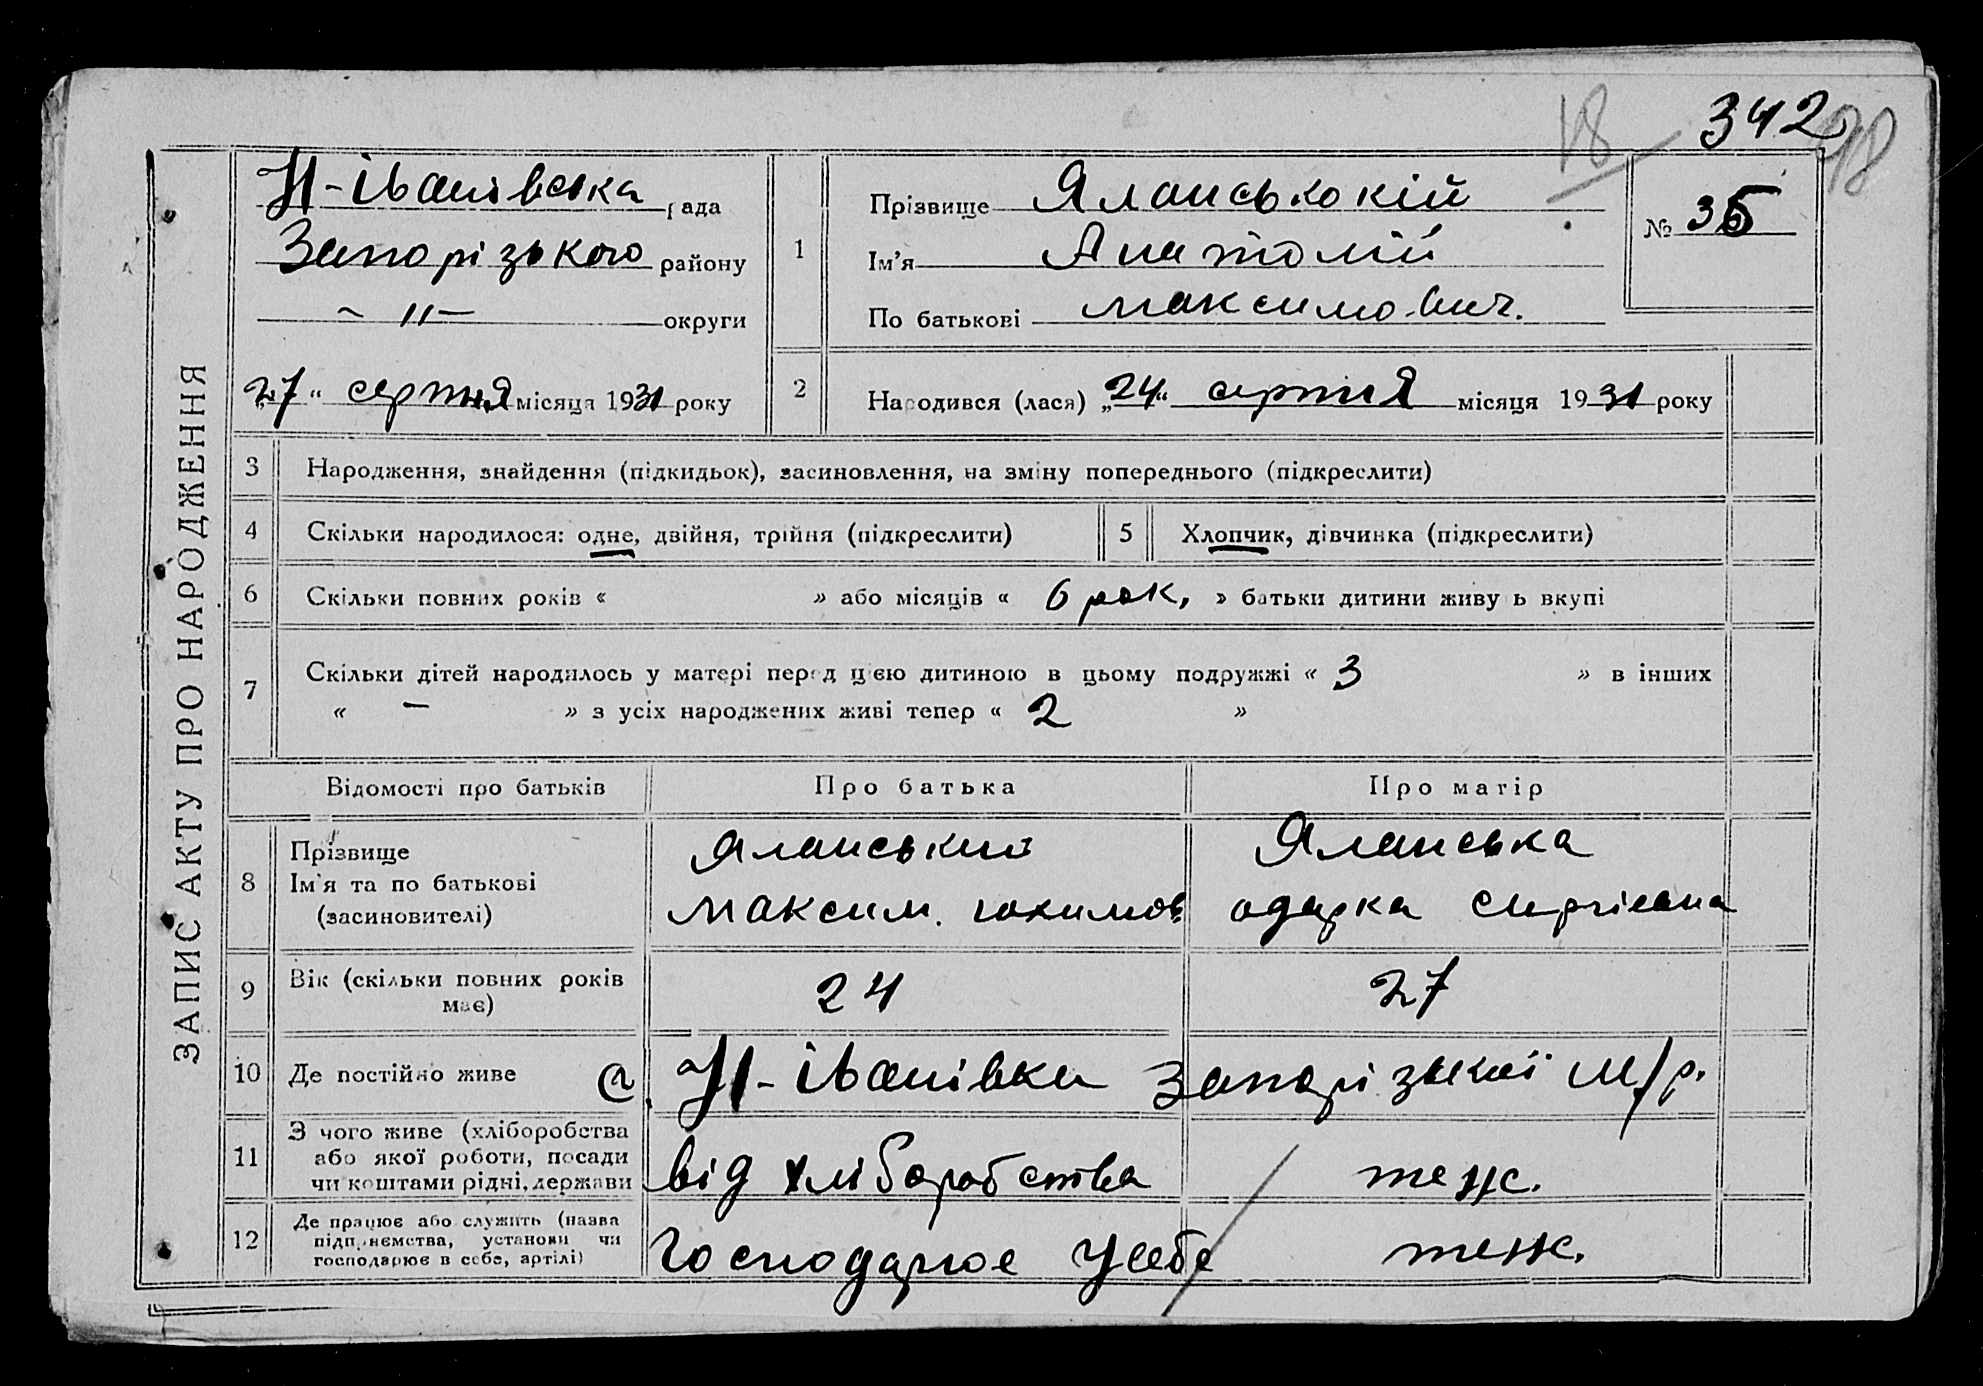 18 342 98
ЗАПИС АКТУ ПРО НАРОДЖЕННЯ
Н-іванівська рада
Запорізького району
~ 〃 — округи
„27“ серпня місяця 1931 року
1
Прізвище Яланськокій
Ім'я Анатолій
По батькові максимович.
№ 35
2
Народився (лася) „24“ серпня місяця 1931 року
3 Народження, знайдення (підкидьок), засиновлення, на зміну попереднього (підкреслити)
4 Скільки народилося: одне, двійня, трійня (підкреслити) 5 Хлопчик, дівчинка (підкреслити)
6 Скільки повних років « » або місяців « 6 рок, » батьки дитини живу ь вкупі
7 Скільки дітей народилось у матері перед цією дитиною в цьому подружжі « 3 » в інших
« – » з усіх народжених живі тепер « 2 »
Відомості про батьків Про батька Про матір
8 Прізвище Яланський Яланська
Ім'я та по батькові максим. юхимов одарка сиргієвна
(засиновителі)
9 Вік (скільки повних років має) 24 27
10 Де постійно живе с. Н-іванівка Запорізької м/р.
11 З чого живе (хліборобства
або якої роботи, посади
чи коштами рідні, держави від хліборобства теж.
12 Де працює або служить (назва
підприємства, установи чи
господарює в себе, артілі) Господарює усебе теж.